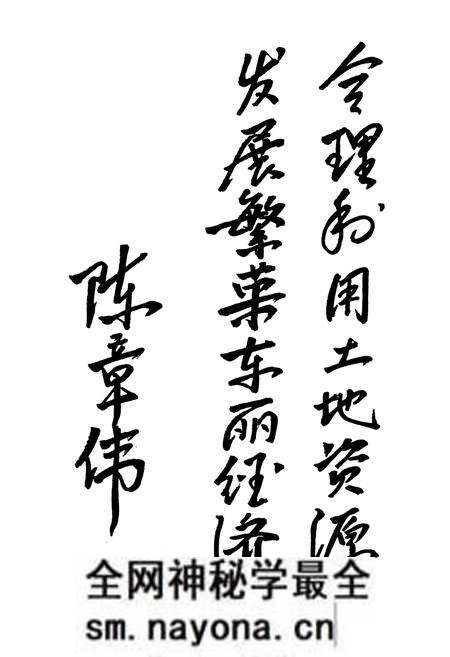 合理利用土地资源
发展繁荣东丽经济
陈章伟
全网神秘学最全
sm.nayona.cn